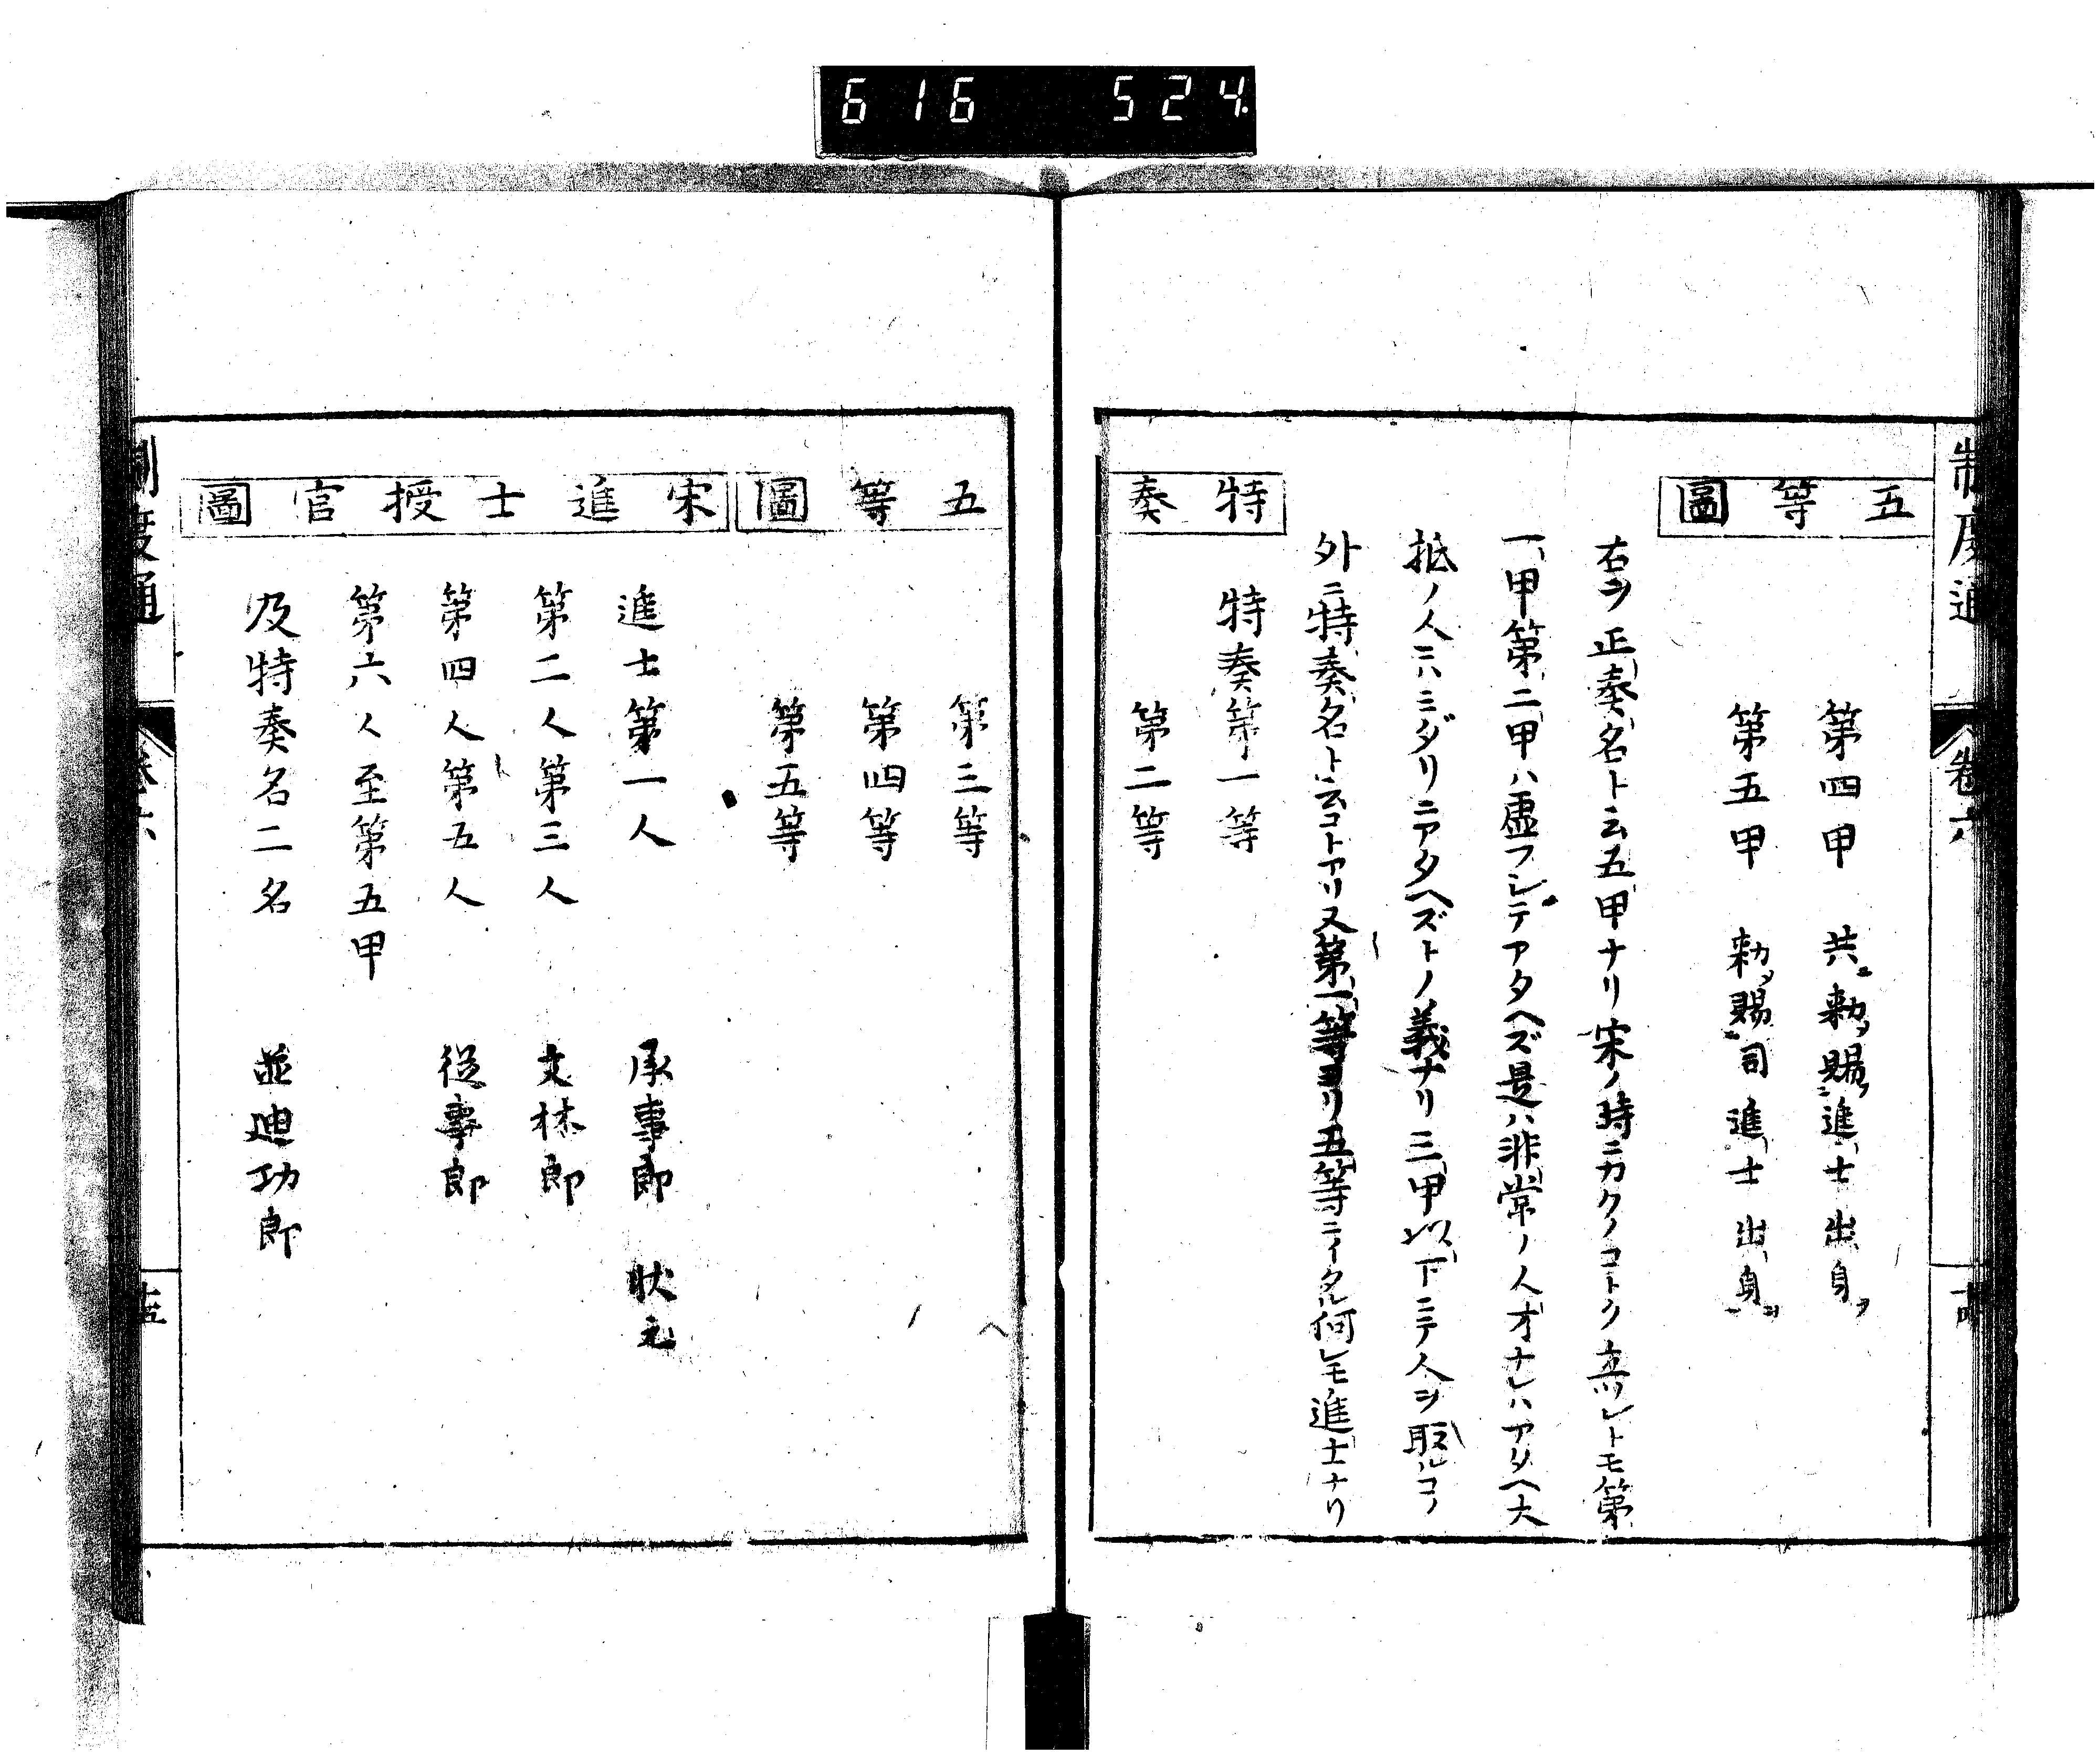 616 524
制度通 卷六 十四
五等圖
第四甲 共ニ勅ヲ賜フニ進士出身ヲ
第五甲 勅ヲ賜ニ同進士出身ヲ
右ヲ正奏名ト云五甲ナリ宋ノ時ニカクノコトク立ツレトモ第
一甲第二甲ハ虚フシテアタヘズ是ハ非常ノ人才ナレハアタヘ大
抵ノ人ニハミダリニアタヘズトノ義ナリ三甲以下ニテ人ヲ取ルコノ
外ニ特奏名ト云コトアリ又第一等ヨリ五等ニイタル何レモ進士ナリ
特奏
特奏第一等
第二等
五等圖
第三等
第四等
第五等
宋進士授官圖
進士第一人 承事郎 狀元
第二人第三人 文林郎
第四人第五人 從事郎
第六人至第五甲
及特奏名二名 並迪功郎
制度通 卷六 十五